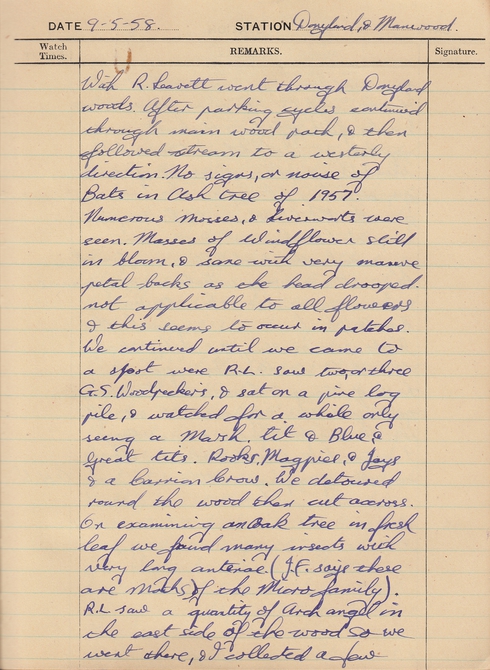 DATE 9-5-58. STATION Donyland, & Manwood.
Watch Times. REMARKS. Signature.
With R. Leavett went through Donyland
woods. After parking cycles continued
through main wood path, & then
followed stream to a westerly
direction. No signs, or noise of
Bats in Ash tree of 1957.
Numerous mosses, & liverworts were
seen. Masses of Windflower still
in bloom, & some with very mauve
petal backs as the head drooped.
not applicable to all flowers
& this seems to occur in patches.
We continued until we came to
a spot were R.L. saw two, or three
G.S. Woodpeckers, & sat on a pine log
pile, & watched for a while only
seeing a Marsh. tit & Blue, &
great tits. Rooks, Magpies, & Jays
& a Carrion Crow. We detoured
round the wood then cut accross.
On examining an Oak tree in fresh
leaf we found many insects with
very long antenae. (J.F. says these
are Moths) of the Micro family).
R.L saw a quantity of Arch angel in
the east side of the wood so we
went there, & I collected a few